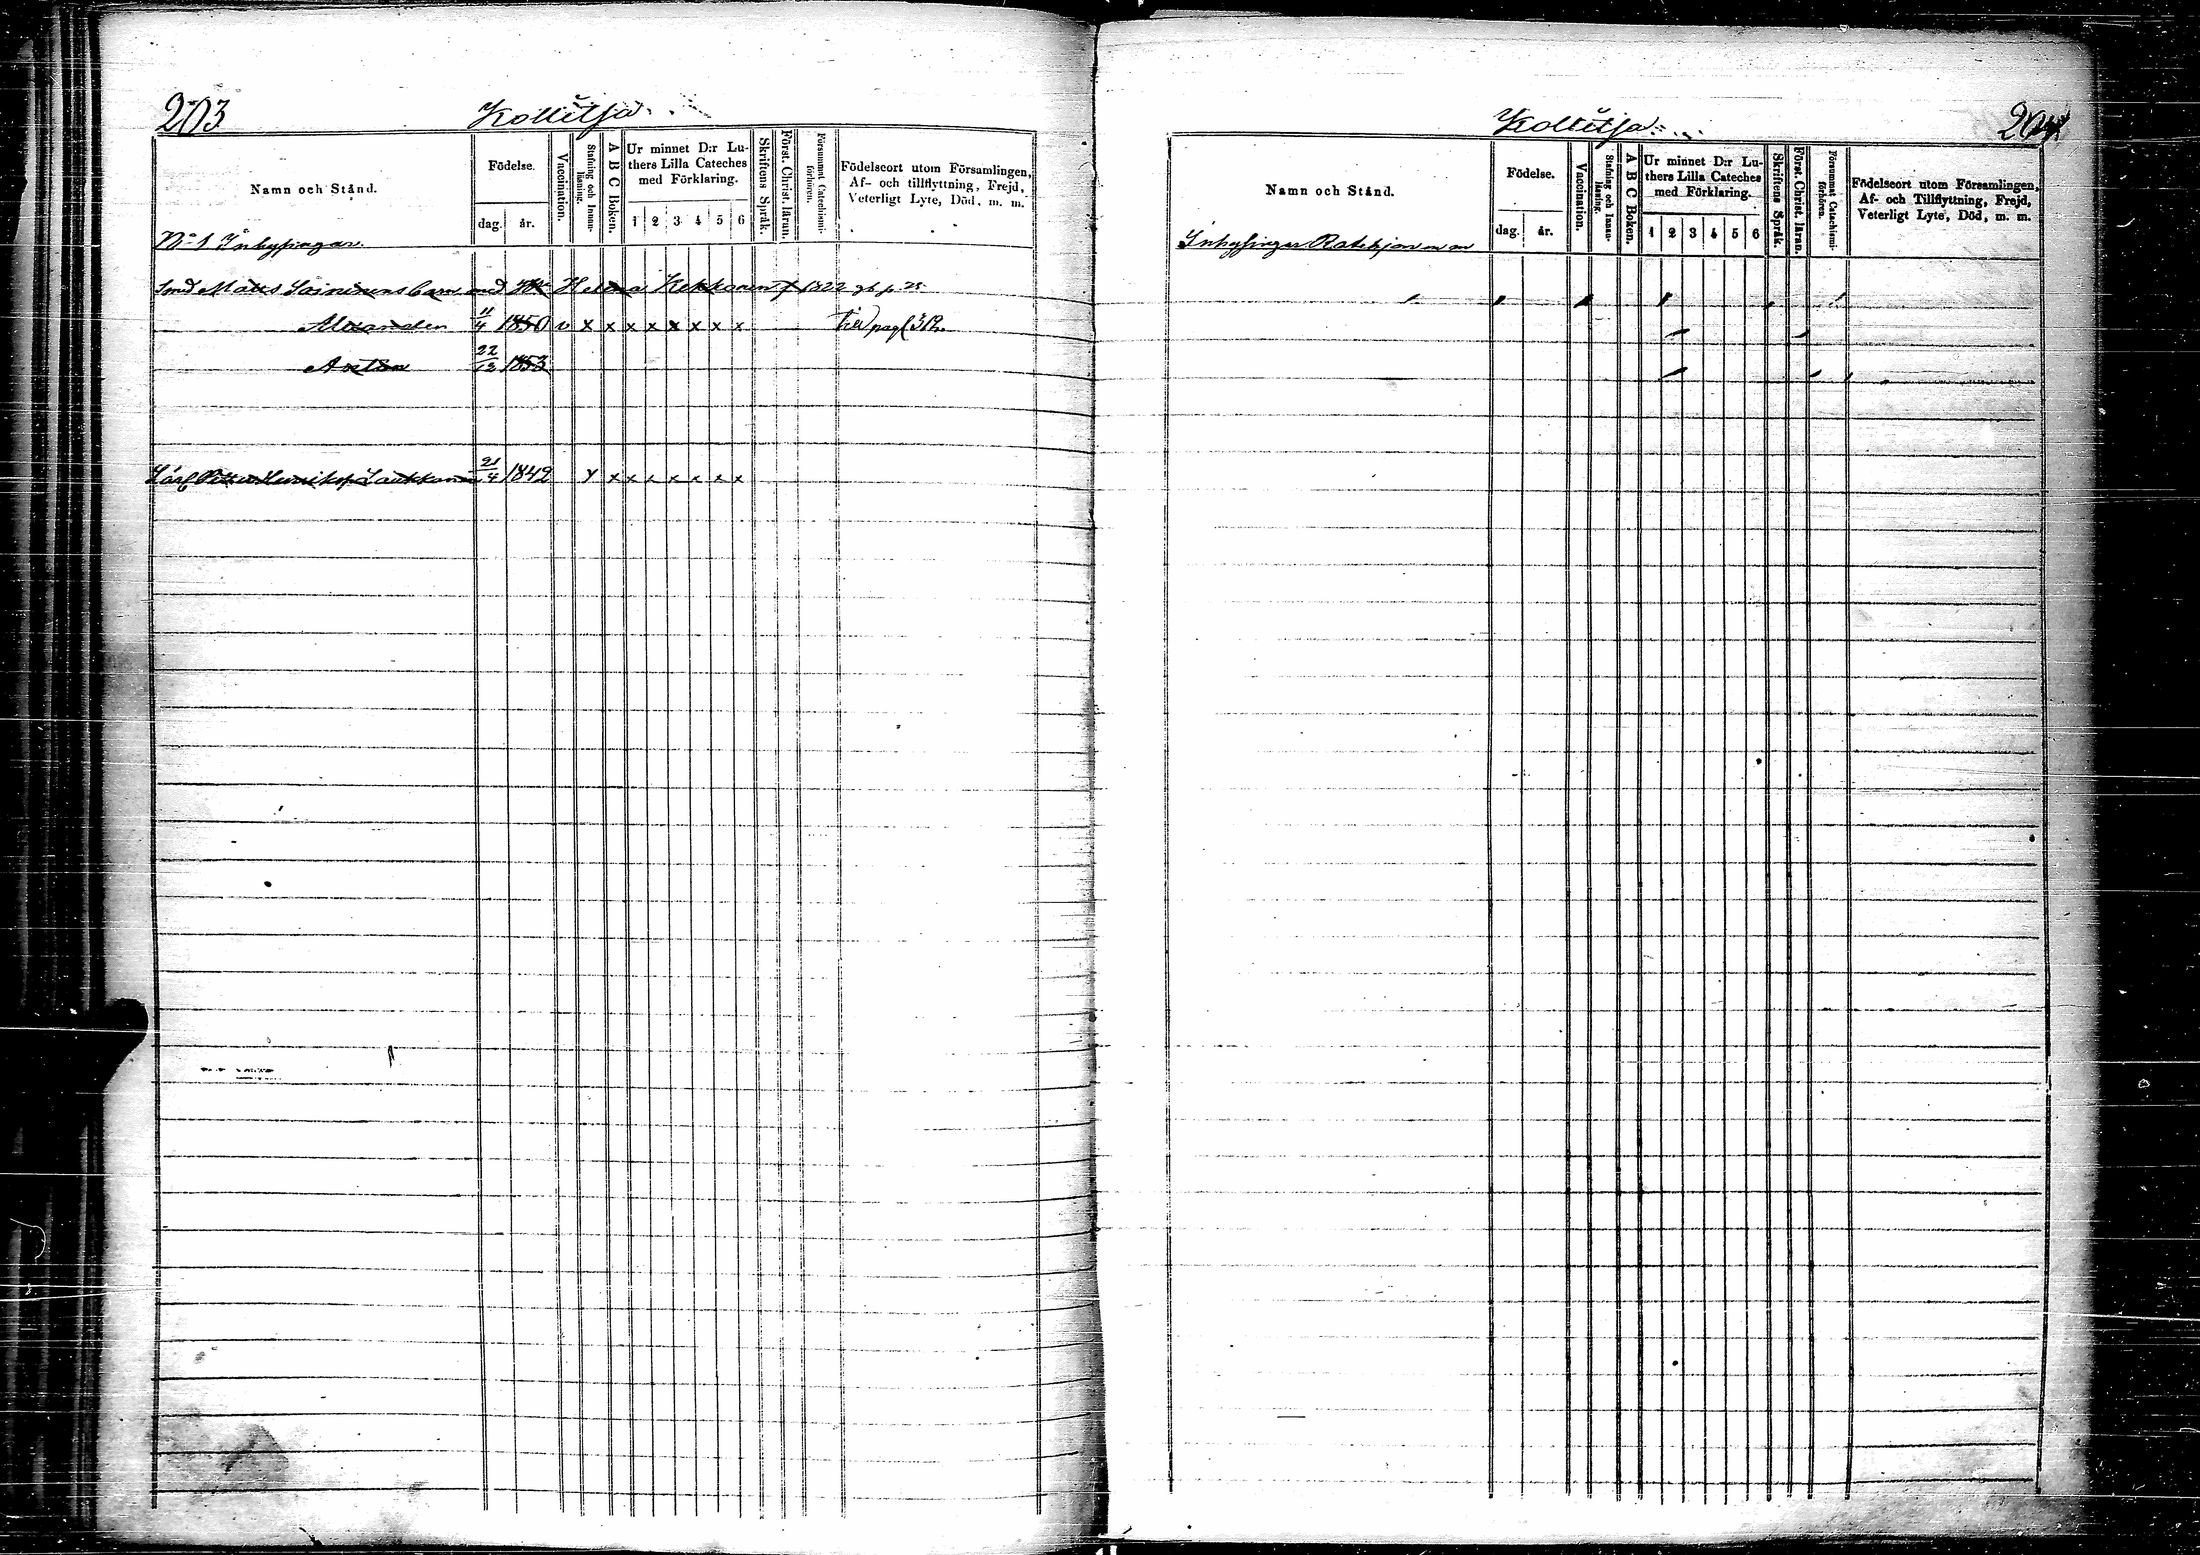 203
Kollitsa
Namn och Stånd.
Födelse.
dag. år.
Vaccination.
Stafning och Innan-läsning.
A B C Boken.
Ur minnet D:r Lu-
thers Lilla Cateches
med Förklaring.
1 2 3 4 5 6
Skriftens Språk.
Först. Christ. läran.
Försummat Catechismi-förhören.
Födelseort utom Församlingen,
Af- och tillflyttning, Frejd,
Veterligt Lyte, Död, m. m.
No 1 Inhysingar.
Smd Matts Sainenens barn med Helena Kekkonen 1822
Alexander 11/4 1850 v x x x x x x x x pag 312.
Anton 22/12 1853
Petter Henriksf Laukkanen 21/4 1842 x x x x x x x
204
Kollitsa
Namn och Stånd.
Födelse.
dag. år.
Vaccination.
Stafning och Innan-läsning.
A B C Boken.
Ur minnet D:r Lu-
thers Lilla Cateches
med Förklaring.
1 2 3 4 5 6
Skriftens Språk.
Först. Christ. läran.
Försummat Catechismi-förhören.
Födelseort utom Församlingen,
Af- och Tillflyttning, Frejd,
Veterligt Lyte, Död, m. m.
Inhysingar